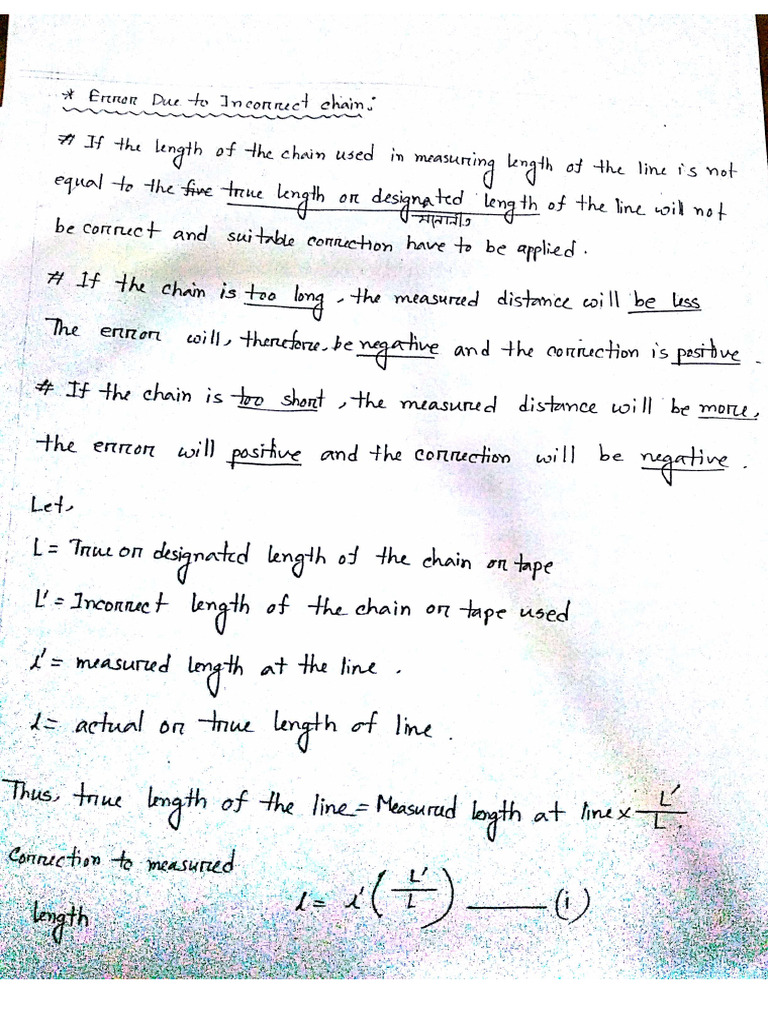 * Error Due to Incorrect chain:
# If the length of the chain used in measuring length of the line is not
equal to the five true length or designated length of the line will not
be correct and suitable correction have to be applied.
# If the chain is too long, the measured distance will be less
The error will, therefore, be negative and the correction is positive.
# If the chain is too short, the measured distance will be more,
the error will positive and the correction will be negative.
Let,
L = True or designated length of the chain or tape
L' = Incorrect length of the chain or tape used
l' = measured length at the line.
l = actual or true length of line.
Thus, true length of the line = Measured length at line × L'/L.
Correction to measured
length
l = l' (L'/L) ——— (i)